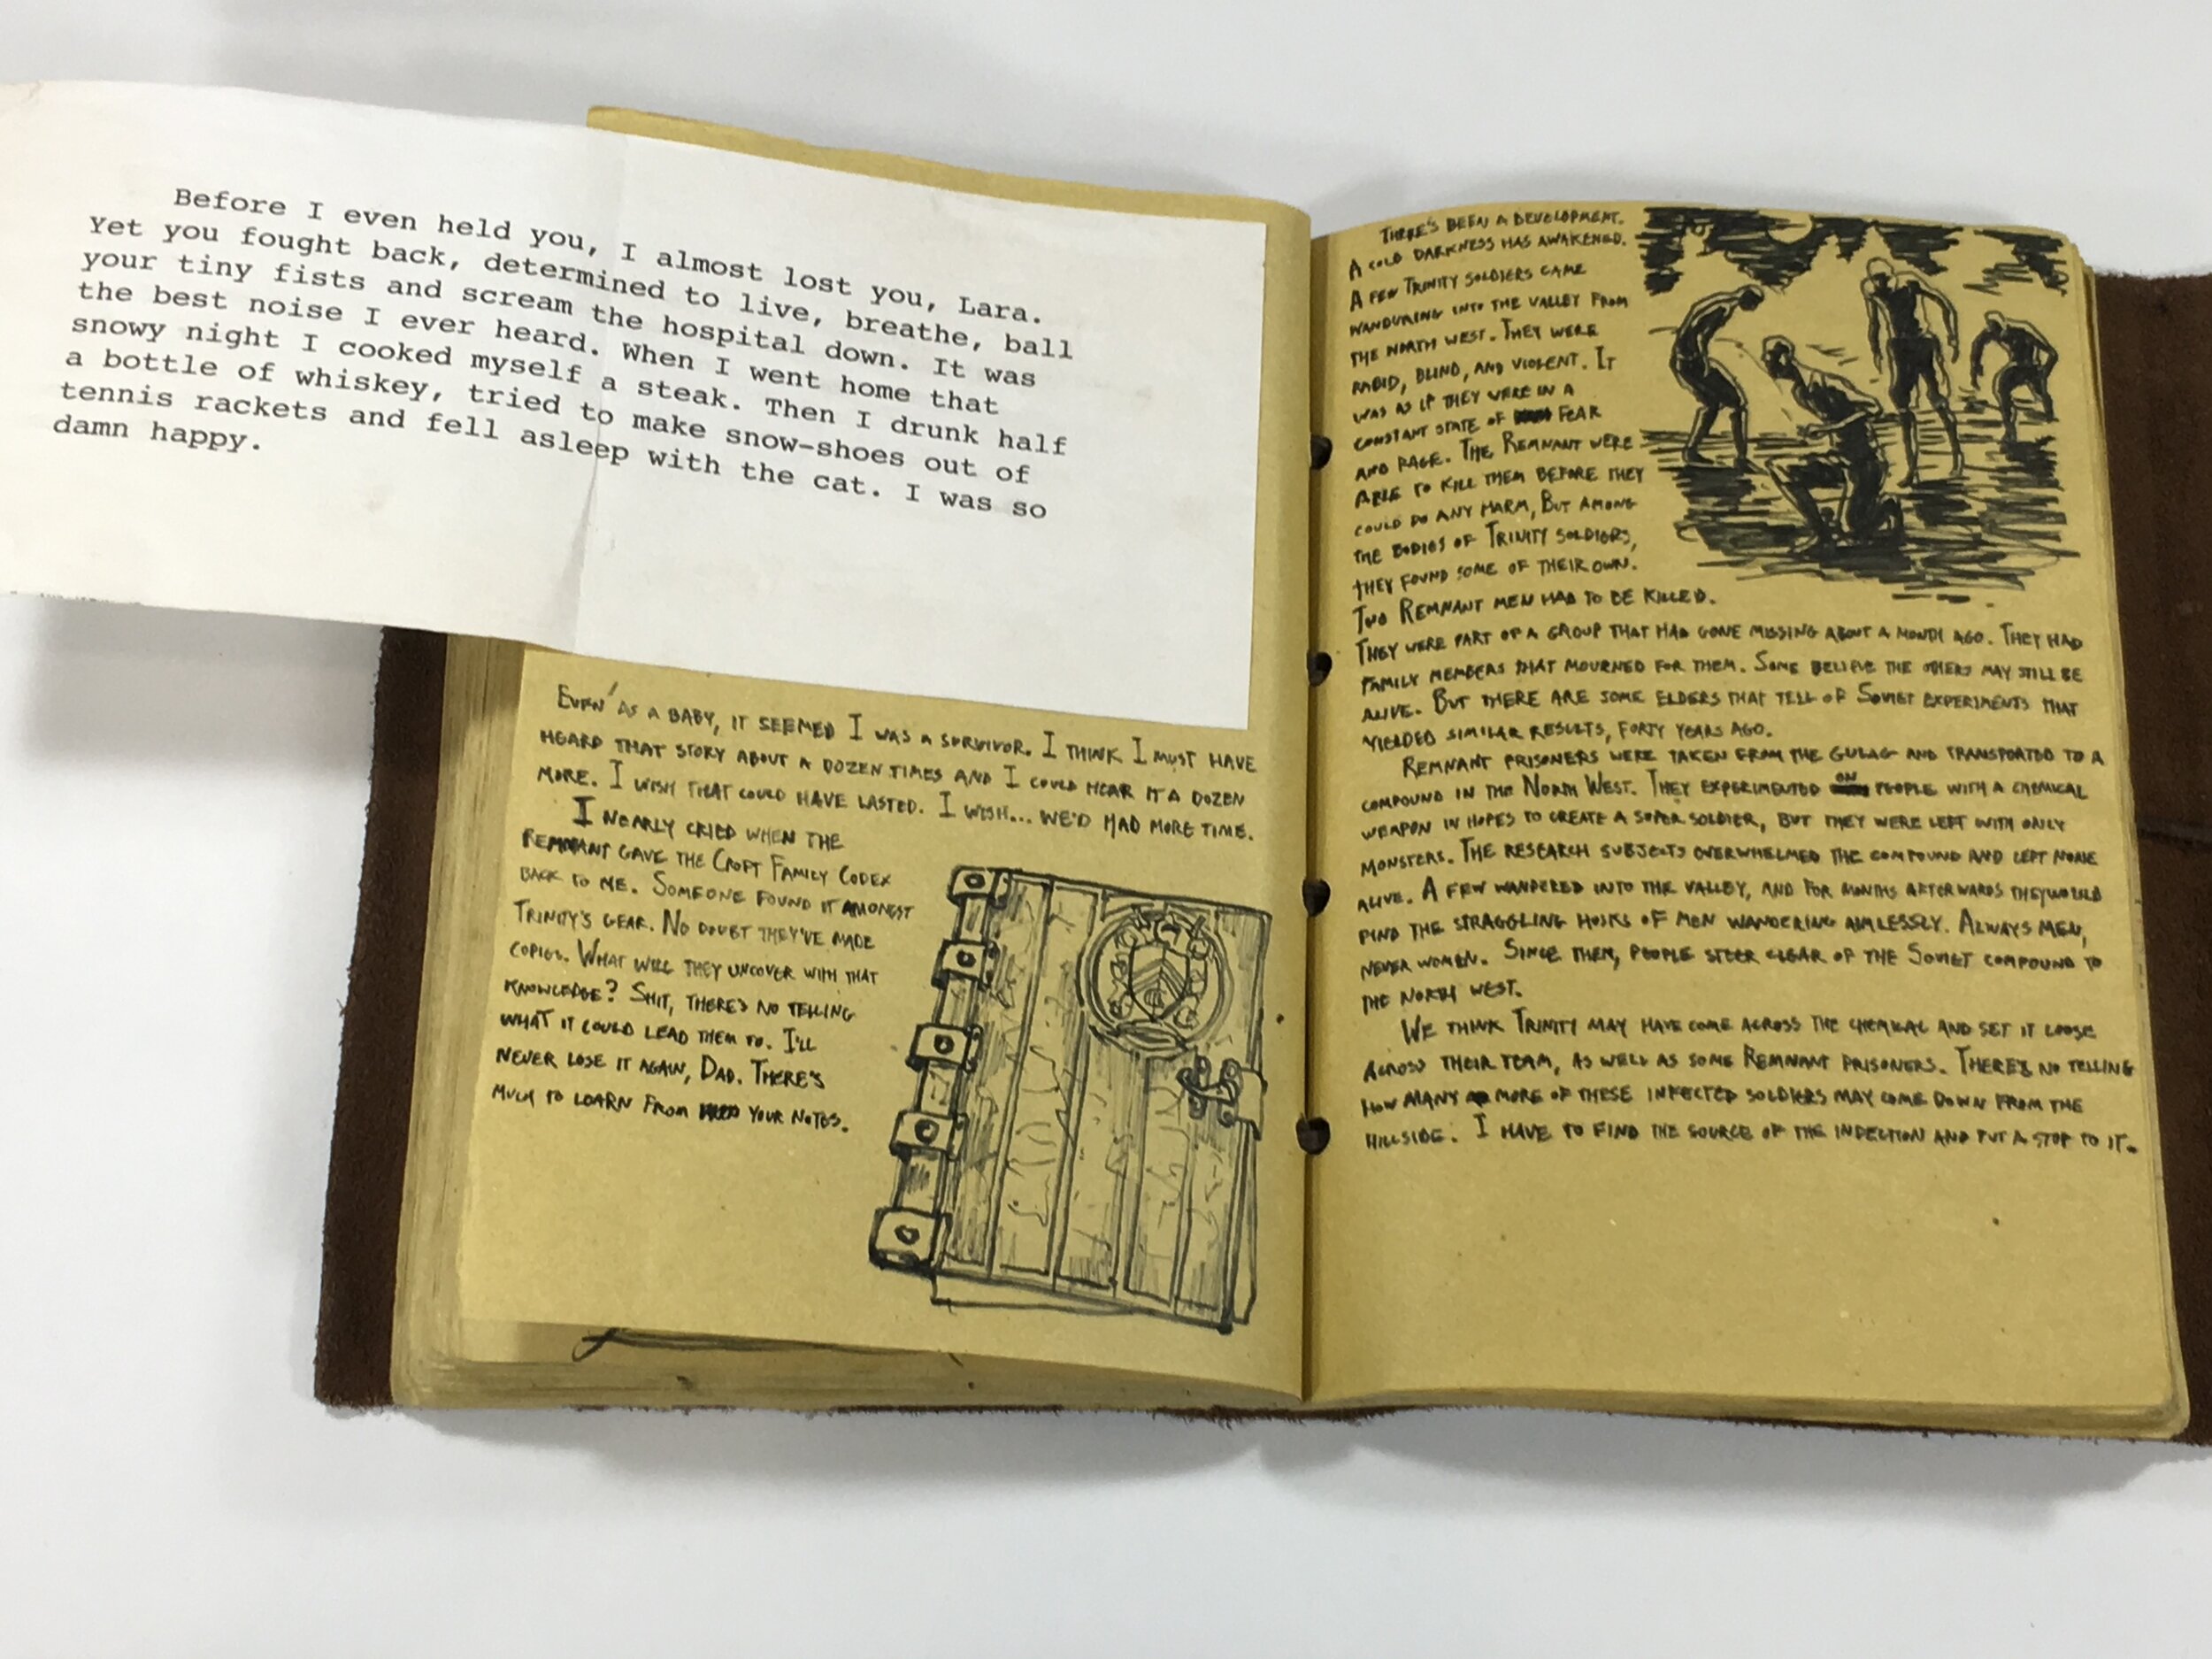 Before I even held you, I almost lost you, Lara.
Yet you fought back, determined to live, breathe, ball
your tiny fists and scream the hospital down. It was
the best noise I ever heard. When I went home that
snowy night I cooked myself a steak. Then I drunk half
a bottle of whiskey, tried to make snow-shoes out of
tennis rackets and fell asleep with the cat. I was so
damn happy.
EVEN AS A BABY, IT SEEMED I WAS A SURVIVOR. I THINK I MUST HAVE
HEARD THAT STORY ABOUT A DOZEN TIMES AND I COULD HEAR IT A DOZEN
MORE. I WISH THAT COULD HAVE LASTED. I WISH... WE'D HAD MORE TIME.
I NEARLY CRIED WHEN THE
REMNANT GAVE THE CROFT FAMILY CODEX
BACK TO ME. SOMEONE FOUND IT AMONGST
TRINITY'S GEAR. NO DOUBT THEY'VE MADE
COPIES. WHAT WILL THEY UNCOVER WITH THAT
KNOWLEDGE? SHIT, THERE'S NO TELLING
WHAT IT COULD LEAD THEM TO. I'LL
NEVER LOSE IT AGAIN, DAD. THERE'S
MUCH TO LEARN FROM YOUR NOTES.
THERE'S BEEN A DEVELOPMENT.
A COLD DARKNESS HAS AWAKENED.
A FEW TRINITY SOLDIERS CAME
WANDURING INTO THE VALLEY FROM
THE NORTH WEST. THEY WERE
RABID, BLIND, AND VIOLENT. IT
WAS AS IF THEY WERE IN A
CONSTANT STATE OF FEAR
AND RAGE. THE REMNANT WERE
ABLE TO KILL THEM BEFORE THEY
COULD DO ANY HARM, BUT AMONG
THE BODIES OF TRINITY SOLDIERS,
THEY FOUND SOME OF THEIR OWN.
TWO REMNANT MEN HAD TO BE KILLED.
THEY WERE PART OF A GROUP THAT HAD GONE MISSING ABOUT A MONTH AGO. THEY HAD
FAMILY MEMBERS THAT MOURNED FOR THEM. SOME BELIEVE THE OTHERS MAY STILL BE
ALIVE. BUT THERE ARE SOME ELDERS THAT TELL OF SOVIET EXPERIMENTS THAT
YIELDED SIMILAR RESULTS, FORTY YEARS AGO.
REMNANT PRISONERS WERE TAKEN FROM THE GULAG AND TRANSPORTED TO A
COMPOUND IN THE NORTH WEST. THEY EXPERIMENTED ON PEOPLE WITH A CHEMICAL
WEAPON IN HOPES TO CREATE A SUPER SOLDIER, BUT THEY WERE LEFT WITH ONLY
MONSTERS. THE RESEARCH SUBJECTS OVERWHELMED THE COMPOUND AND LEFT NONE
ALIVE. A FEW WANDERED INTO THE VALLEY, AND FOR MONTHS AFTERWARDS THEY WOULD
FIND THE STRAGGLING HUSKS OF MEN WANDERING AIMLESSLY. ALWAYS MEN,
NEVER WOMEN. SINCE THEN, PEOPLE STEER CLEAR OF THE SOVIET COMPOUND TO
THE NORTH WEST.
WE THINK TRINITY MAY HAVE COME ACROSS THE CHEMICAL AND SET IT LOOSE
ACROSS THEIR TEAM, AS WELL AS SOME REMNANT PRISONERS. THERE'S NO TELLING
HOW MANY MORE OF THESE INFECTED SOLDIERS MAY COME DOWN FROM THE
HILLSIDE. I HAVE TO FIND THE SOURCE OF THE INFECTION AND PUT A STOP TO IT.